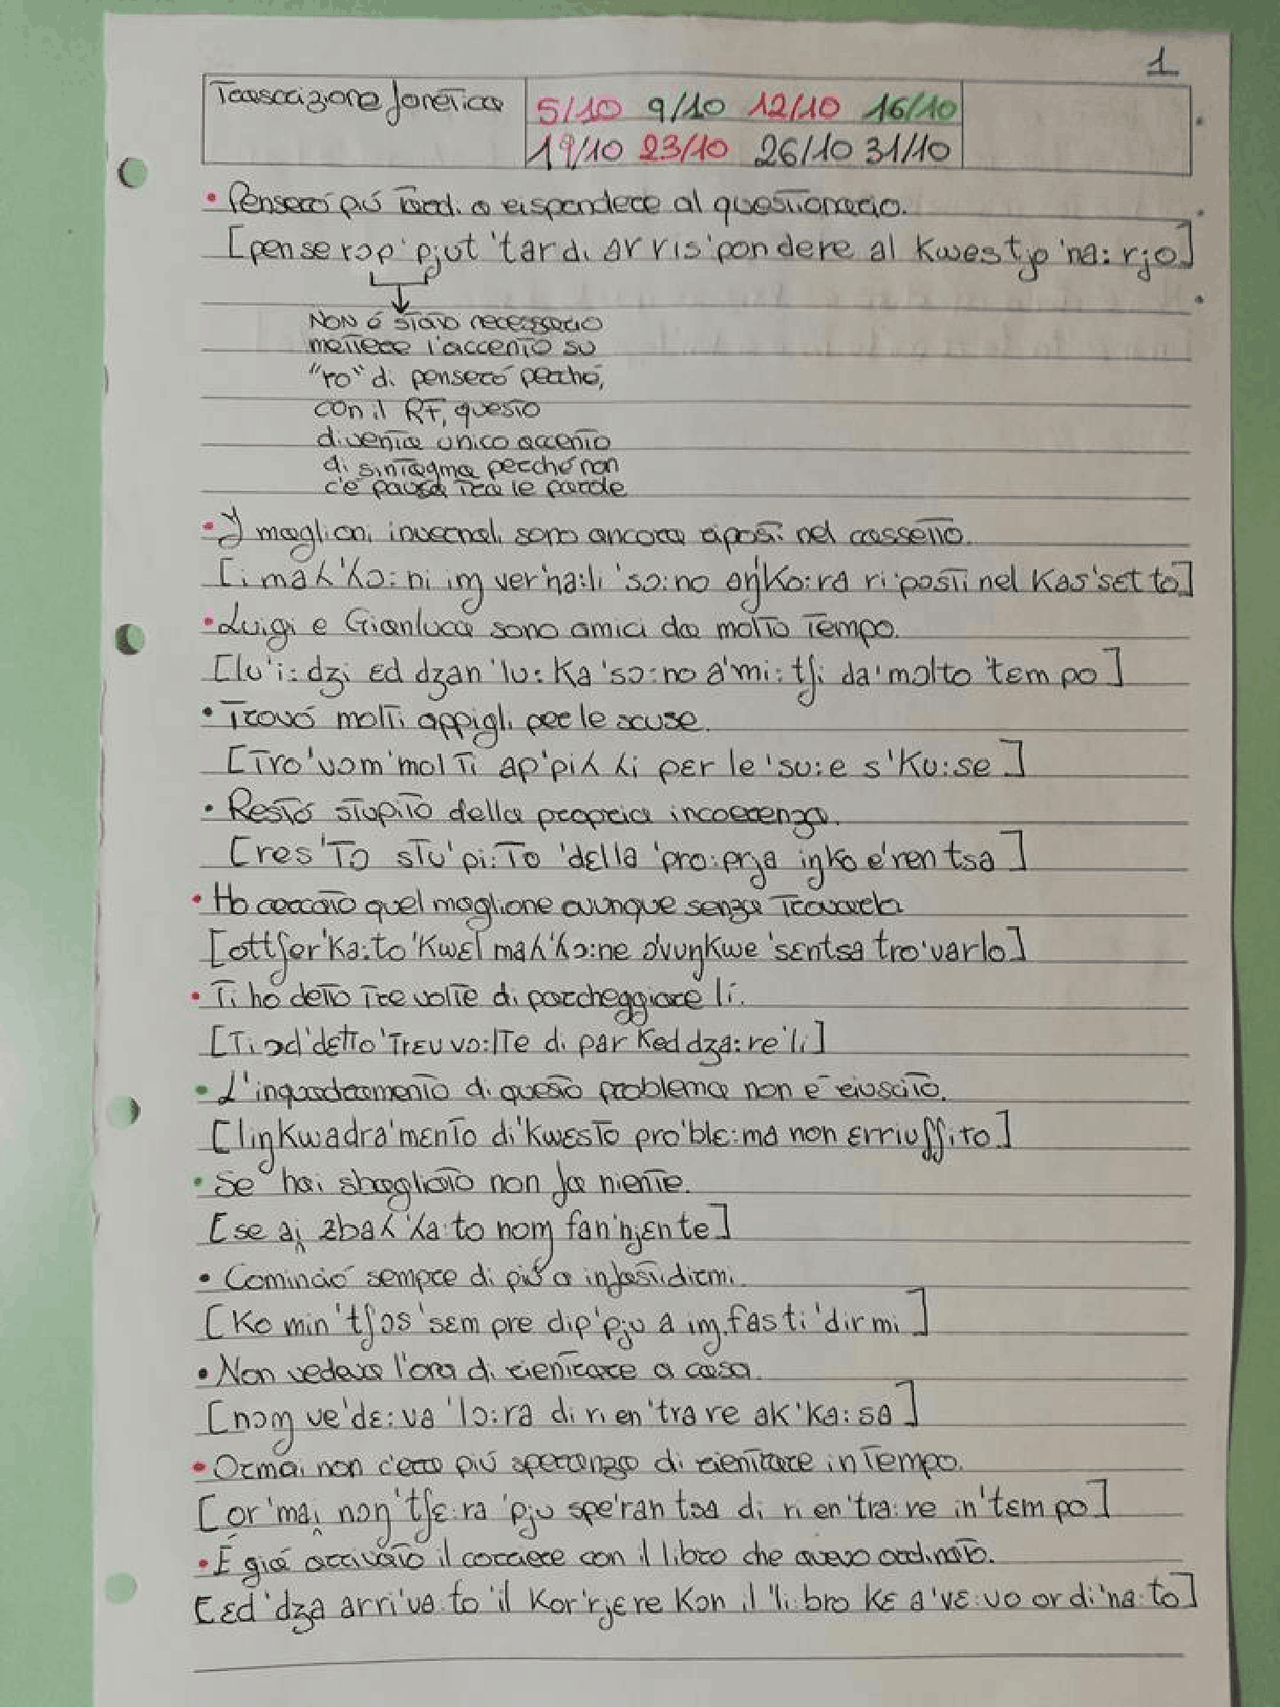 1
Trascrizione fonetica
5/10 9/10 12/10 16/10
19/10 23/10 26/10 31/10
• Penserò più tardi a rispondere al questionario.
[pense rɔp 'pjut 'tardi arris'pondere al kwestjo 'na:rjo]
Non è stato necessario
mettere l'accento su
"ro" di penserò perché,
con il RF, questo
diventa unico accento
di sintagma perché non
c'è pausa tra le parole
• I maglioni invernali sono ancora riposti nel cassetto.
[i maʎ'ʎo:ni iɱ ver'na:li 'so:no aŋ'ko:ra ri'posti nel kas'set to]
• Luigi e Gianluca sono amici da molto tempo.
[lu'i:dʒi ɛd dʒan'lu:ka 'so:no a'mi:tʃi da'molto 'tɛm po]
• Trovò molti appigli per le scuse.
[tro'vom'molti ap'piʎ ʎi per le 'su:e s'ku:se]
• Restò stupito della propria incoerenza.
[res'to stu'pi:to 'della 'prɔ:prja iŋko e'rɛn tsa]
• Ho cercato quel maglione ovunque senza trovarlo
[ottʃer'ka:to 'kwel maʎ'ʎo:ne o'vuŋkwe 'sɛntsa tro'varlo]
• Ti ho detto tre volte di parcheggiare lì.
[ti ɔd'detto 'trɛv vɔ:lte di par ked dʒa:re 'li]
• L'inquadramento di questo problema non è riuscito.
[liŋkwadra'mento di 'kwesto pro'blɛ:ma non ɛrriuʃʃito]
• Se hai sbagliato non fa niente.
[se ai̯ zbaʎ'ʎa:to noɱ fan'njɛnte]
• Cominciò sempre di più a infastidirmi.
[ko min'tʃɔs 'sɛm pre dip'pju a iɱ fasti'dir mi]
• Non vedeva l'ora di rientrare a casa.
[noɱ ve'de:va 'lo:ra di ri en'tra re ak'ka:sa]
• Ormai non c'era più speranza di rientrare in tempo.
[or'mai̯ non 'tʃɛ:ra 'pju spe'ran tsa di ri en'tra:re in'tɛm po]
• È già arrivato il corriere con il libro che avevo ordinato.
[ɛd'dʒa arri'va:to 'il kor'rjere kon il 'li:bro ke a've:vo ordi'na:to]